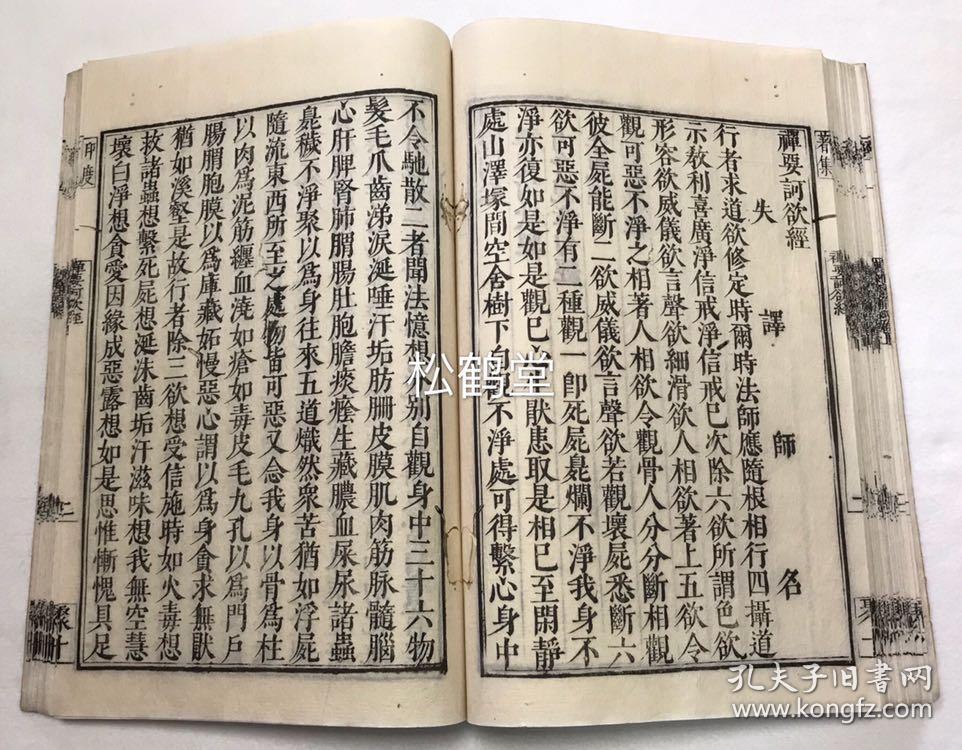 禪要訶欲經
失譯師名
行者求道欲修定時爾時法師應隨根相行四攝道
示教利喜廣淨信戒淨信戒已次除六欲所謂色欲
形容欲威儀欲言聲欲細滑欲人相欲著上五欲令
觀可惡不淨之相著人相欲令觀骨人分分斷相觀
彼全屍能斷二欲威儀欲言聲欲若觀壞屍悉斷六
欲可惡不淨有二種觀一卽死屍臭爛不淨我身不
淨亦復如是如是觀已心猒患取是相已至閑靜
處山澤塚間空舍樹下自觀不淨處可得繫心身中
不令馳散二者聞法憶想分別自觀身中三十六物
髮毛爪齒涕淚涎唾汗垢肪𦙱皮膜肌肉筋脉髓腦
心肝脾腎肺胃腸肚胞膽痰癊生藏膿血屎尿諸蟲
臭穢不淨聚以爲身往來五道熾然衆苦猶如浮屍
隨流東西所至之處物皆可惡又念我身以骨爲柱
以肉爲泥筋纏血澆如瘡如毒皮毛九孔以爲門戶
腸胃胞膜以爲庫藏妬慢惡心謂以爲身貪求無猒
猶如溪壑是故行者除三欲想受信施時如火毒想
救諸蟲想繫死屍想涎洙齒垢汗滋味想我無空慧
壞白淨想貪愛因緣成惡露想如是思惟慚愧具足
印度
禪要訶欲經
二
松鶴堂
孔夫子旧书网
www.kongfz.com